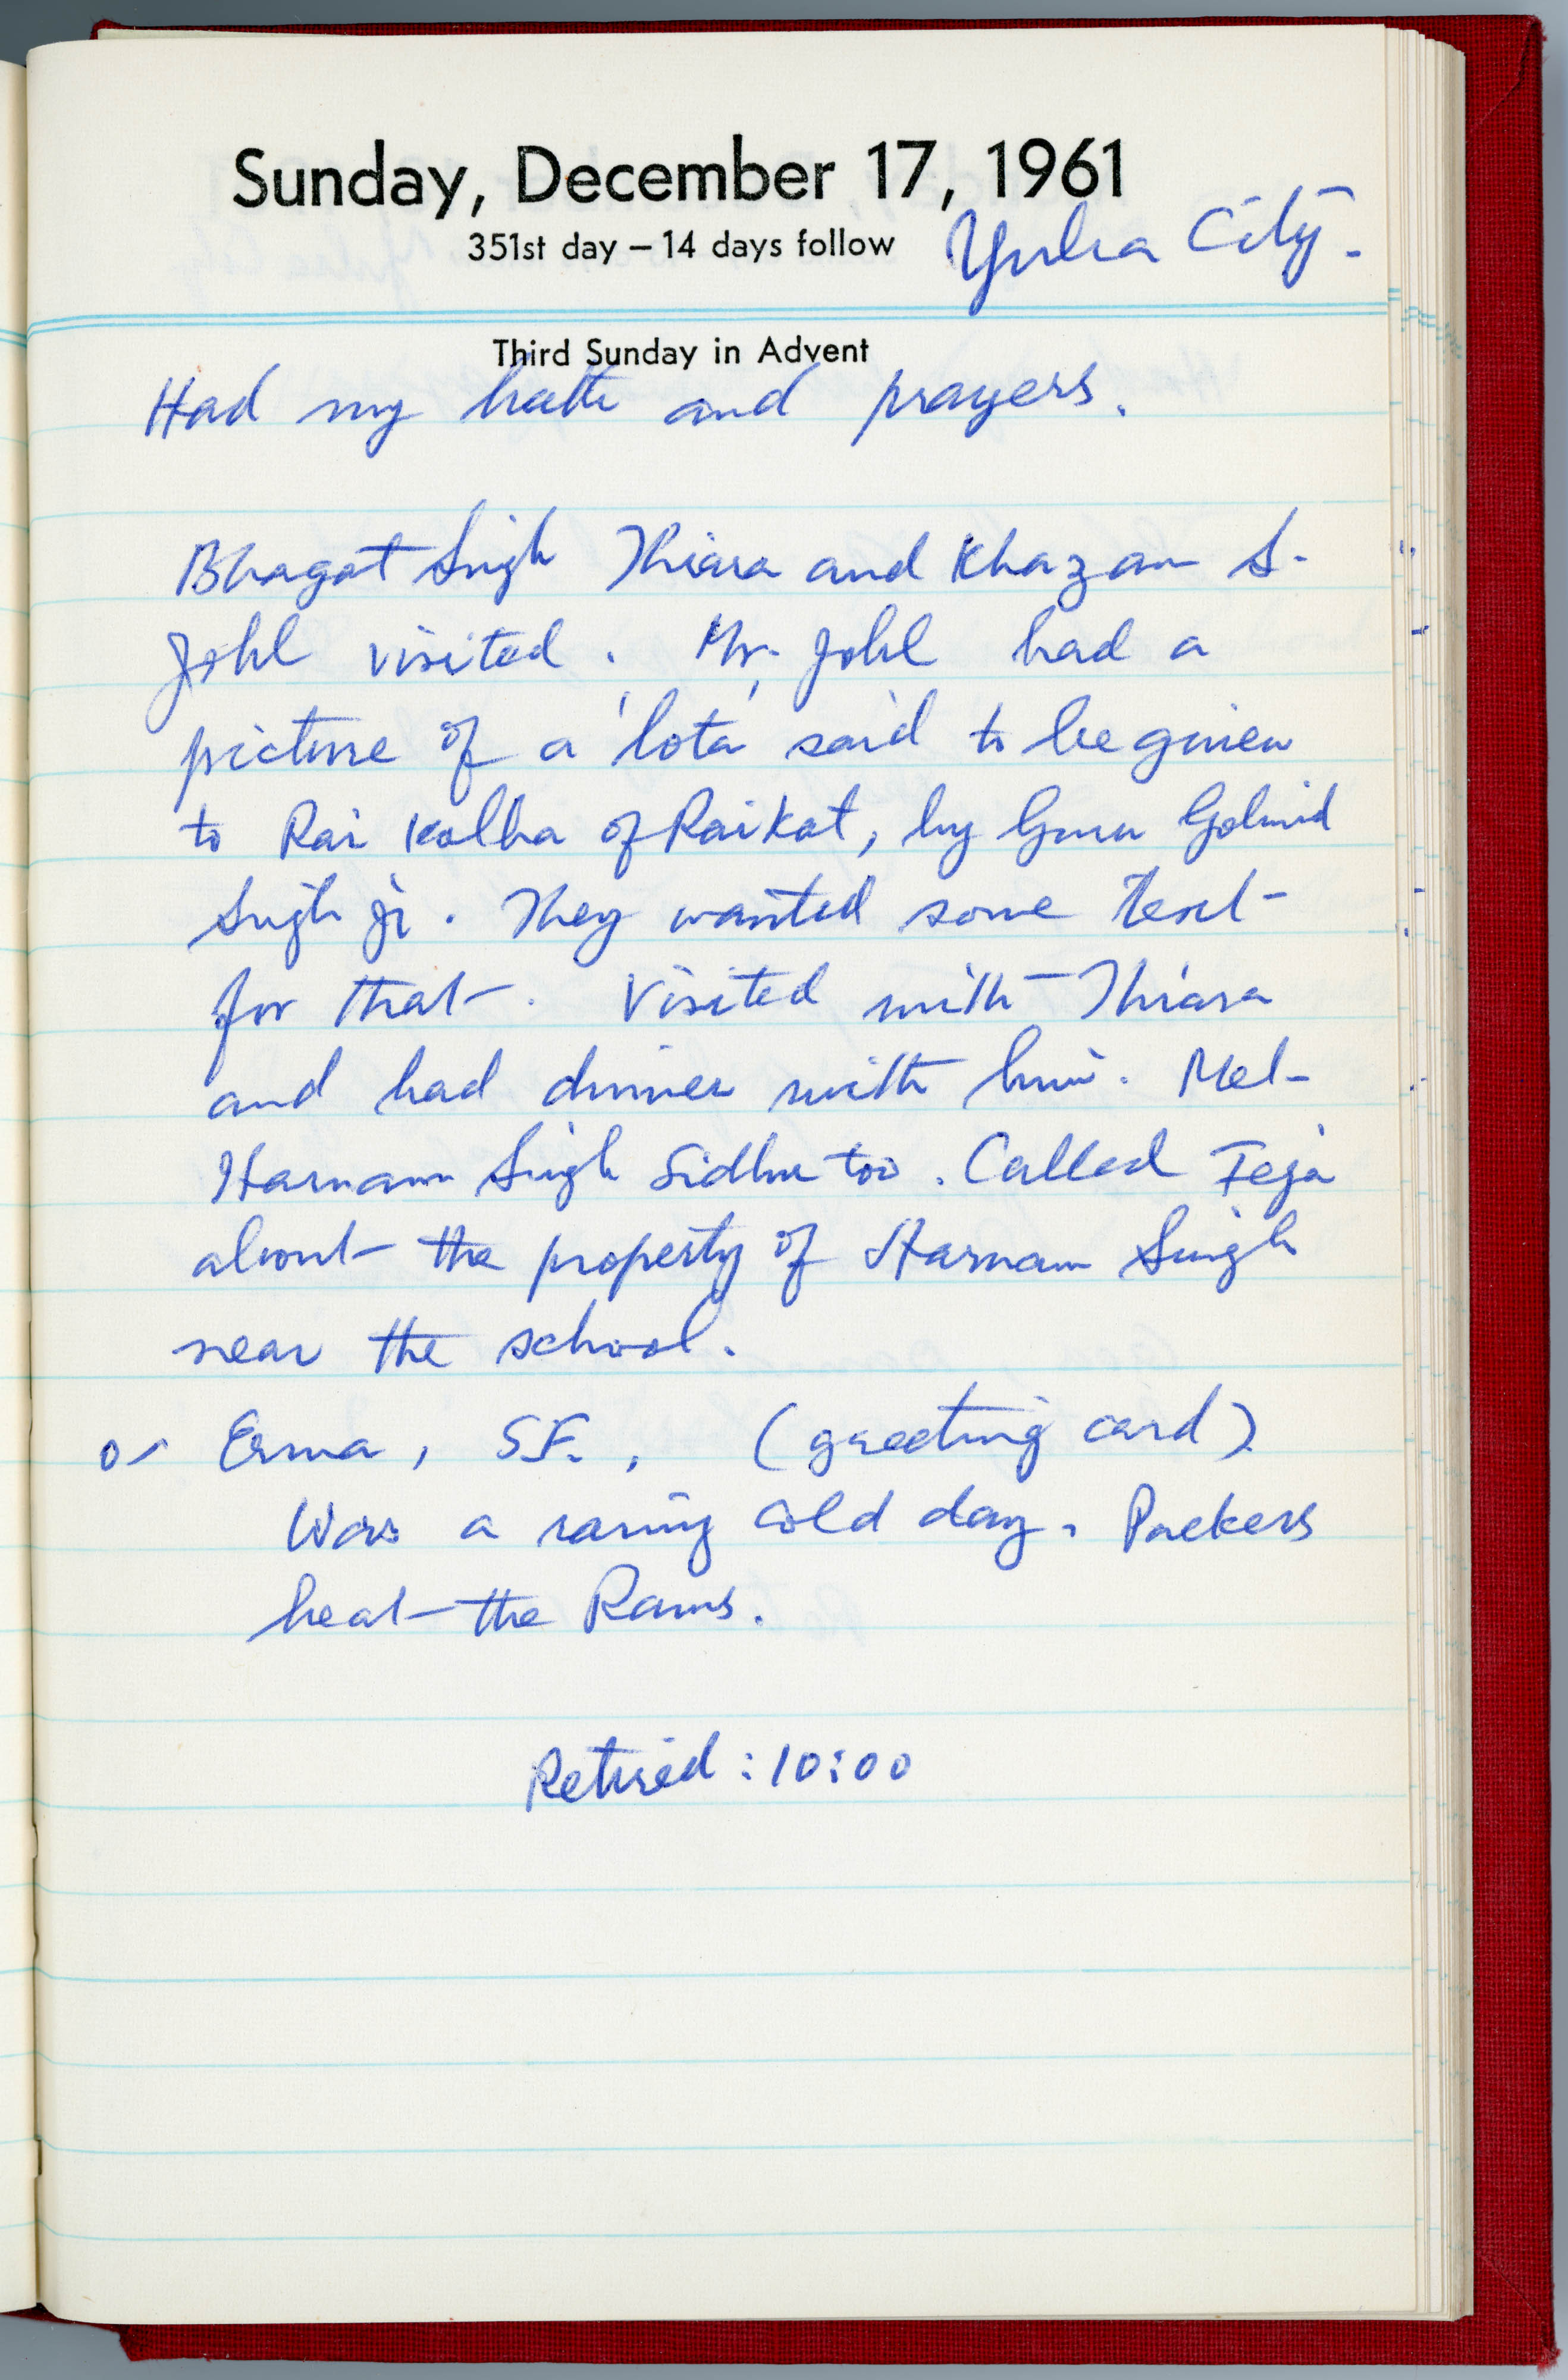 Sunday, December 17, 1961
351st day – 14 days follow
Yuba City.
Third Sunday in Advent
Had my bath and prayers.
Bhagat Singh Thiara and Khazan S.
Johl visited. Mr. Johl had a
picture of a 'lota' said to be given
to Rai Kalha of Raikot, by Guru Gobind
Singh ji. They wanted some text
for that. Visited with Thiara
and had dinner with him. Met
Harnam Singh Sidhu too. Called Teja
about the property of Harnam Singh
near the school.
Erma, S.F., (greeting card).
Was a raring cold day. Packers
beat the Rams.
Retired : 10:00